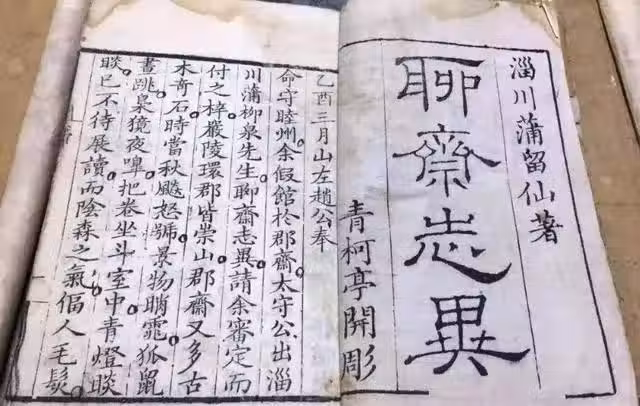 淄川蒲留仙著
聊齋志異
青柯亭開彫
乙酉三月山左趙公奉
命守睦州余假館於郡齋太守公出淄
川蒲柳泉先生聊齋志異請余審定而
付之梓嚴陵環郡皆崇山郡齋又多古
木奇石時當秋飈怒號景物睄窕狐鼠
晝跳梟獍夜嘷把卷坐斗室中青燈睒
睒已不待展讀而陰森之氣偪人毛髮